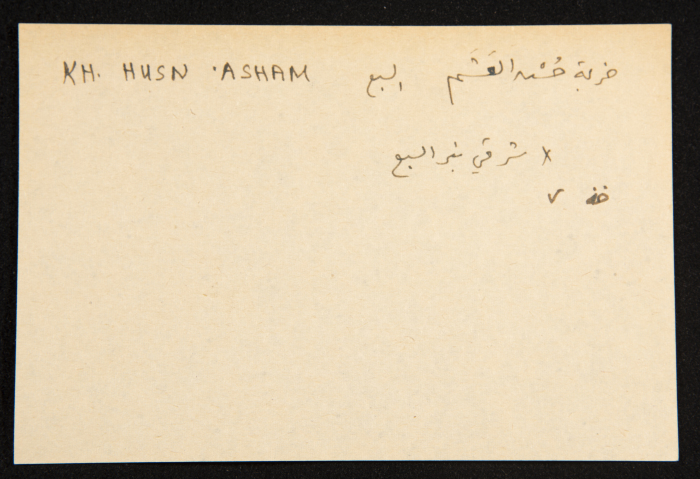 KH. HUSN 'ASHAM السبع خربة حُسْن العَشَم
x شرقي بئر السبع
خف ٧